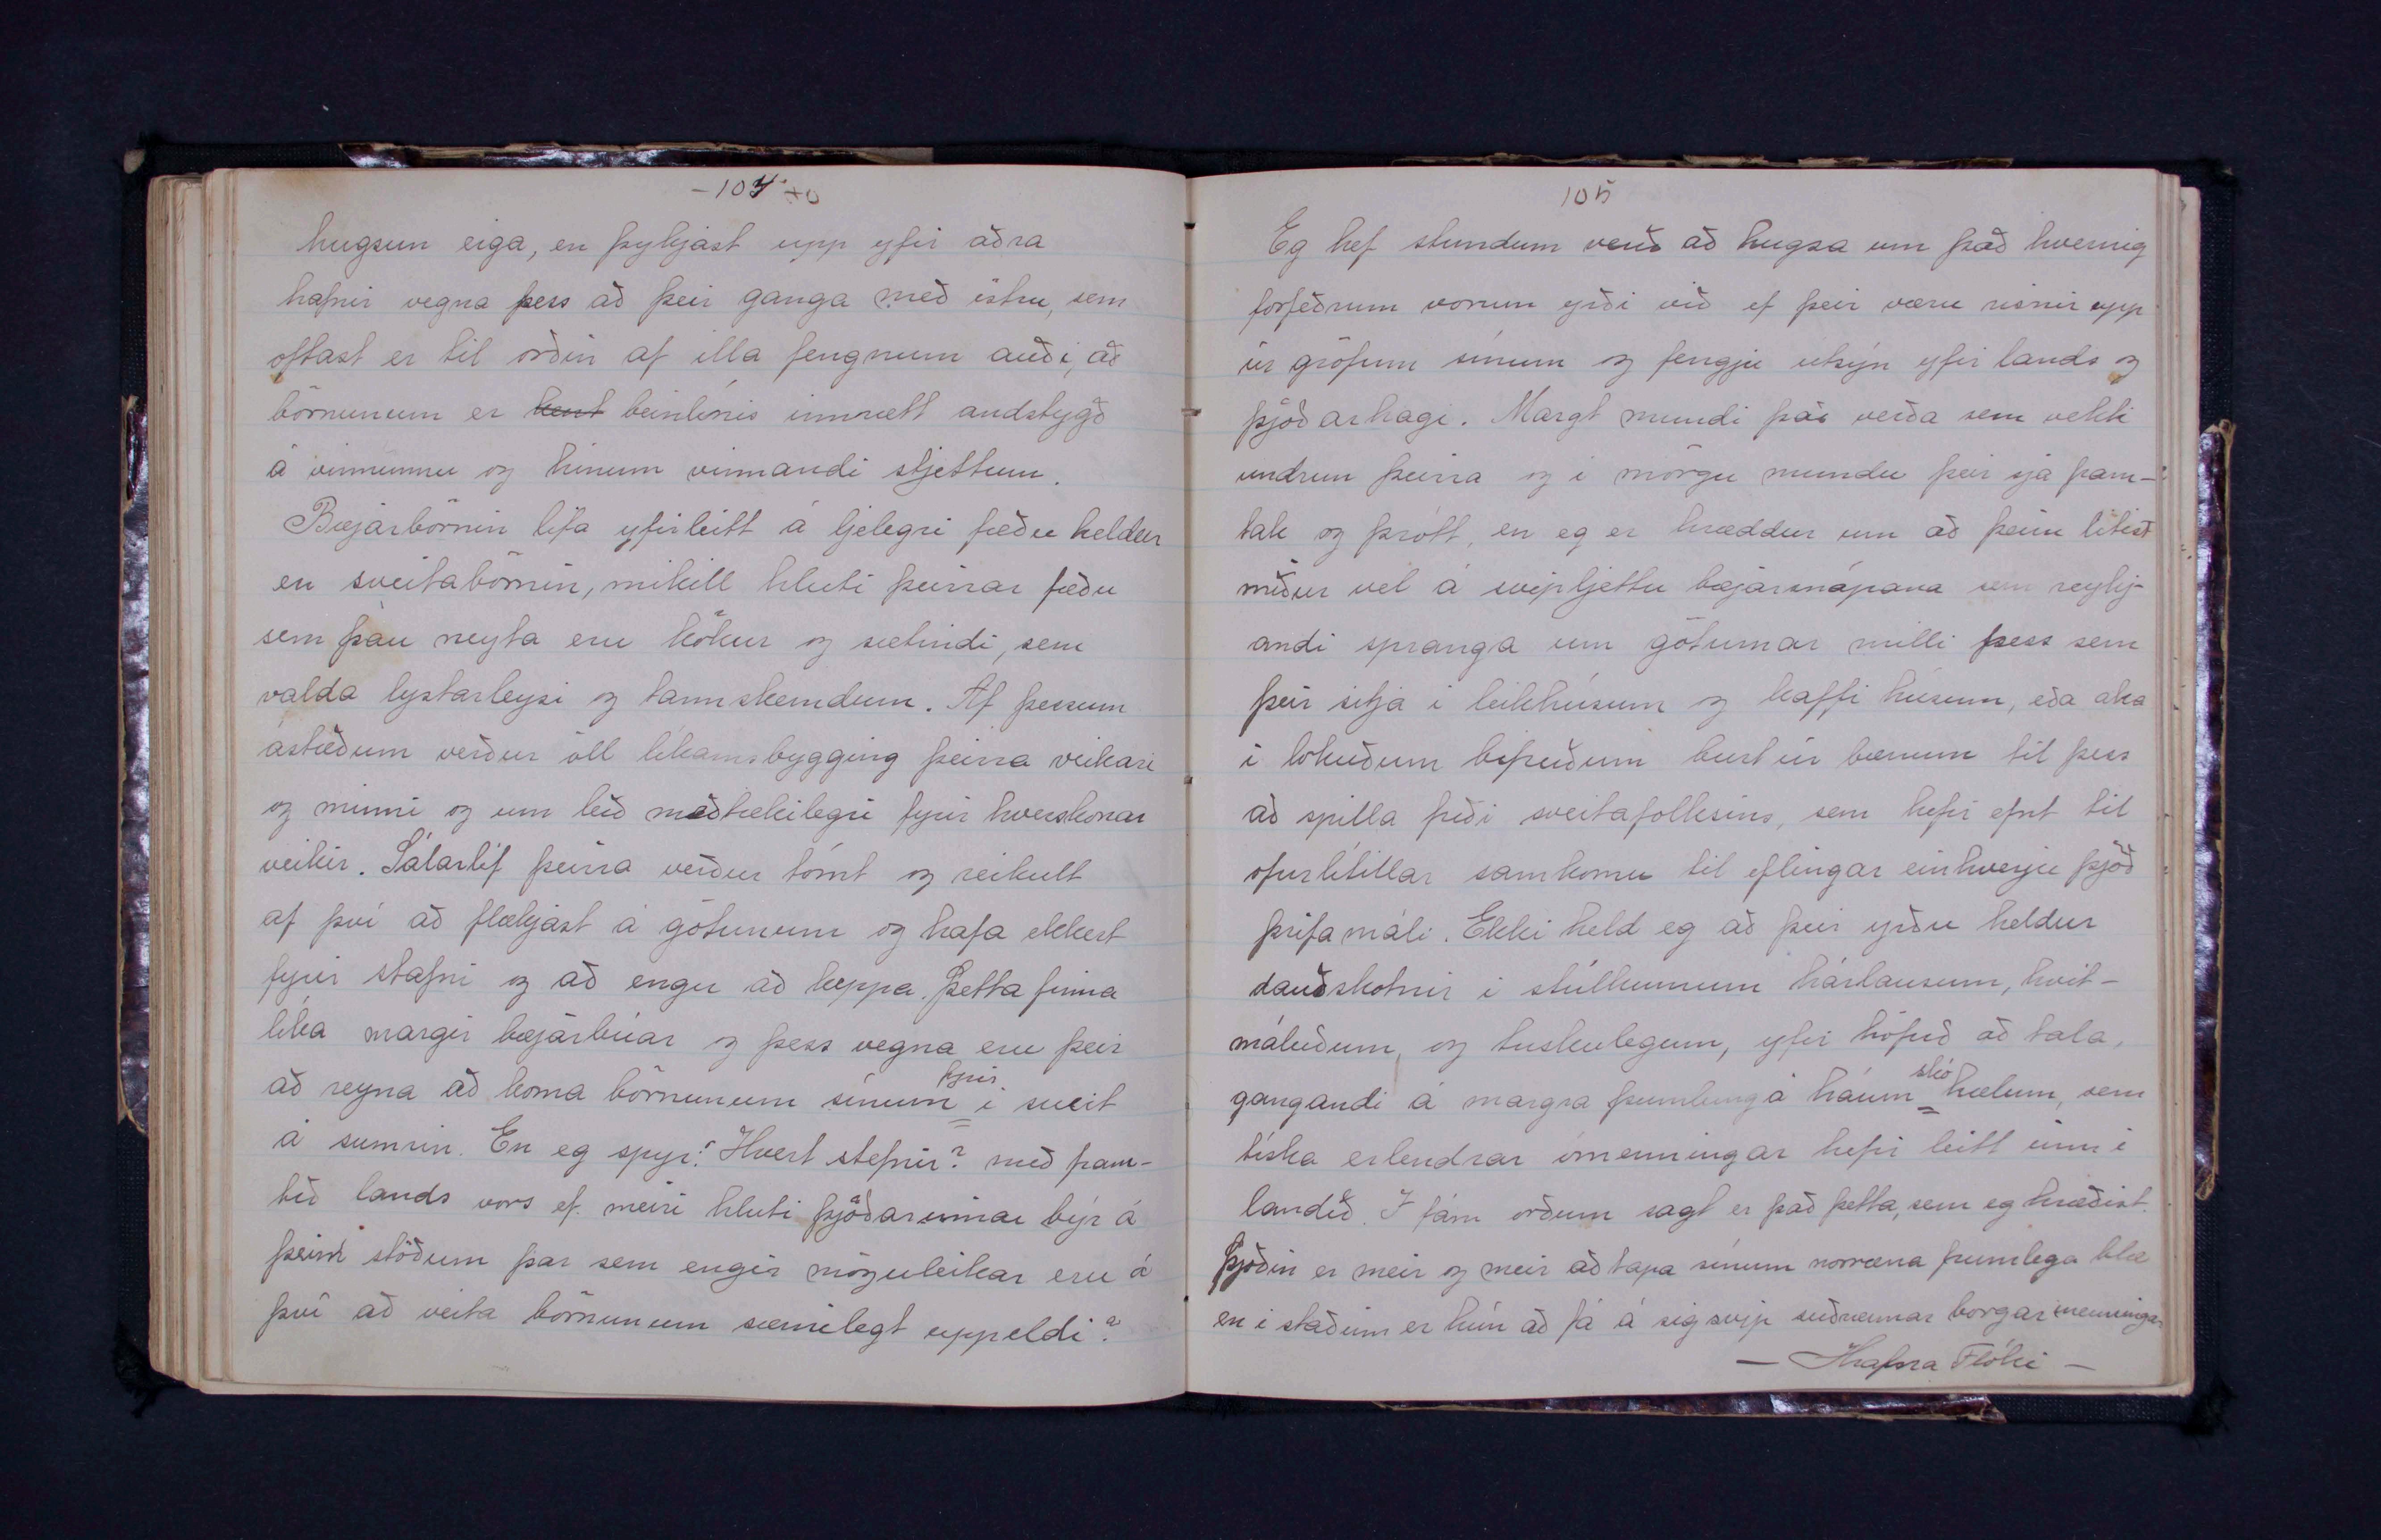 - 104
hugsun eiga, en þykjast upp yfir aðra
hafnir vegna þess að þeir ganga með ístru, sem
oftast er til orðin af illa fengnum auði, að
börnunum er beinlínis innrætt andstygð
á vinnunni og hinum vinnandi stjettum.
Bæjarbörnin lifa yfirleitt á ljelegri fæðu heldur
en sveitabörnin, mikill hluti þeirrar fæðu
sem þau neyta eru kökur og sætindi, sem
valda lystarleysi og tannskemdum. Af þessum
ástæðum verður öll líkamsbygging þeirra veikari
og minni og um leið móttækilegri fyrir hverskonar
veikir. Sálarlíf þeirra verður tómt og reikult
af því að flækjast á götunum og hafa ekkert
fyrir stafni og að engu að keppa. Þetta finna
líka margir bæjarbúar og þess vegna eru þeir
að reyna að koma börnunum sínum fyrir í sveit
á sumrin. En eg spyr: Hvert stefnir? með fram-
tíð lands vors ef meiri hluti þjóðarinnar býr á
þeim stöðum þar sem engir möguleikar eru á
því að veita börnunum sæmilegt uppeldi?
105
Eg hef stundum verið að hugsa um það hvernig
forfeðrum vorum yrði við ef þeir væru risnir upp
úr gröfum sínum og fengju útsýn yfir lands og
þjóðarhagi. Margt mundi þar verða sem vekti
undrun þeirra og í mörgu mundu þeir sjá fram-
tak og þrótt, en eg er hræddur um að þeim litist
miður vel á svipljettu bæjarsnápana sem reykj-
andi spranga um göturnar milli þess sem
þeir sitja í leikhúsum og kaffi húsum, eða aka
í lokuðum bifreiðum burt úr bænum til þess
að spilla friði sveitafólksins, sem hefir efnt til
ofurlítillar samkomu til eflingar einhverju þjóð
þrifa máli. Ekki held eg að þeir yrðu heldur
dauðskotnir í stúlkunum hárlausum, hvít-
máluðum, og tuskulegum, yfir höfuð að tala,
gangandi á margra þumlunga háum skó hælum, sem
tíska erlendrar ómenningar hefir leitt inn í
landið. Í fám orðum sagt er það þetta, sem eg hræðist.
Þjóðin er meir og meir að tapa sínum norræna frumlega blæ
en í staðinn er hún að fá á sig svip suðrænnar borgarmenningar
- Hrafna Flóki -